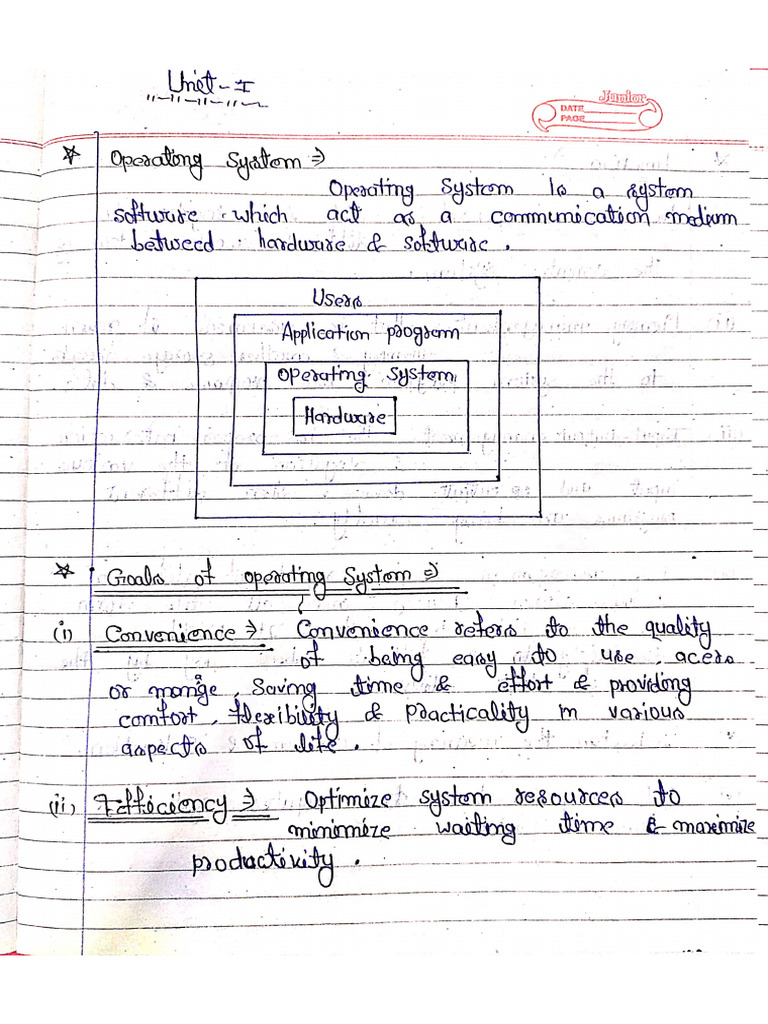 Unit-I
Junior
DATE
PAGE
Operating System ⇒
Operating System is a system
software which act as a communication medium
betweed hardware & software.
Users
Application program
Operating System
Hardware
Goals of operating System ⇒
(i) Convenience ⇒ Convenience refers to the quality
of being easy to use, acess
or mange, saving time & effort & providing
comfort, flexibility & practicality in various
aspects of life.
(ii) Efficiency ⇒ Optimize system resources to
minimize waiting time & maximize
productivity.